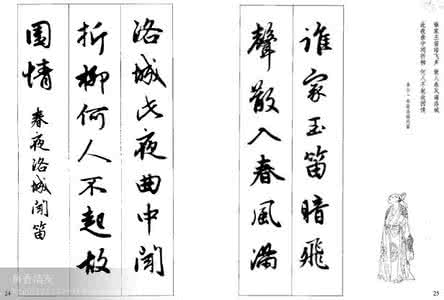 谁家玉笛暗飞声 散入春风满洛城
此夜曲中闻折柳 何人不起故园情
李白·春夜洛城闻笛
谁家玉笛暗飛
聲散入春風滿
洛城此夜曲中聞
折柳何人不起故
園情
春夜洛城聞笛
25
24